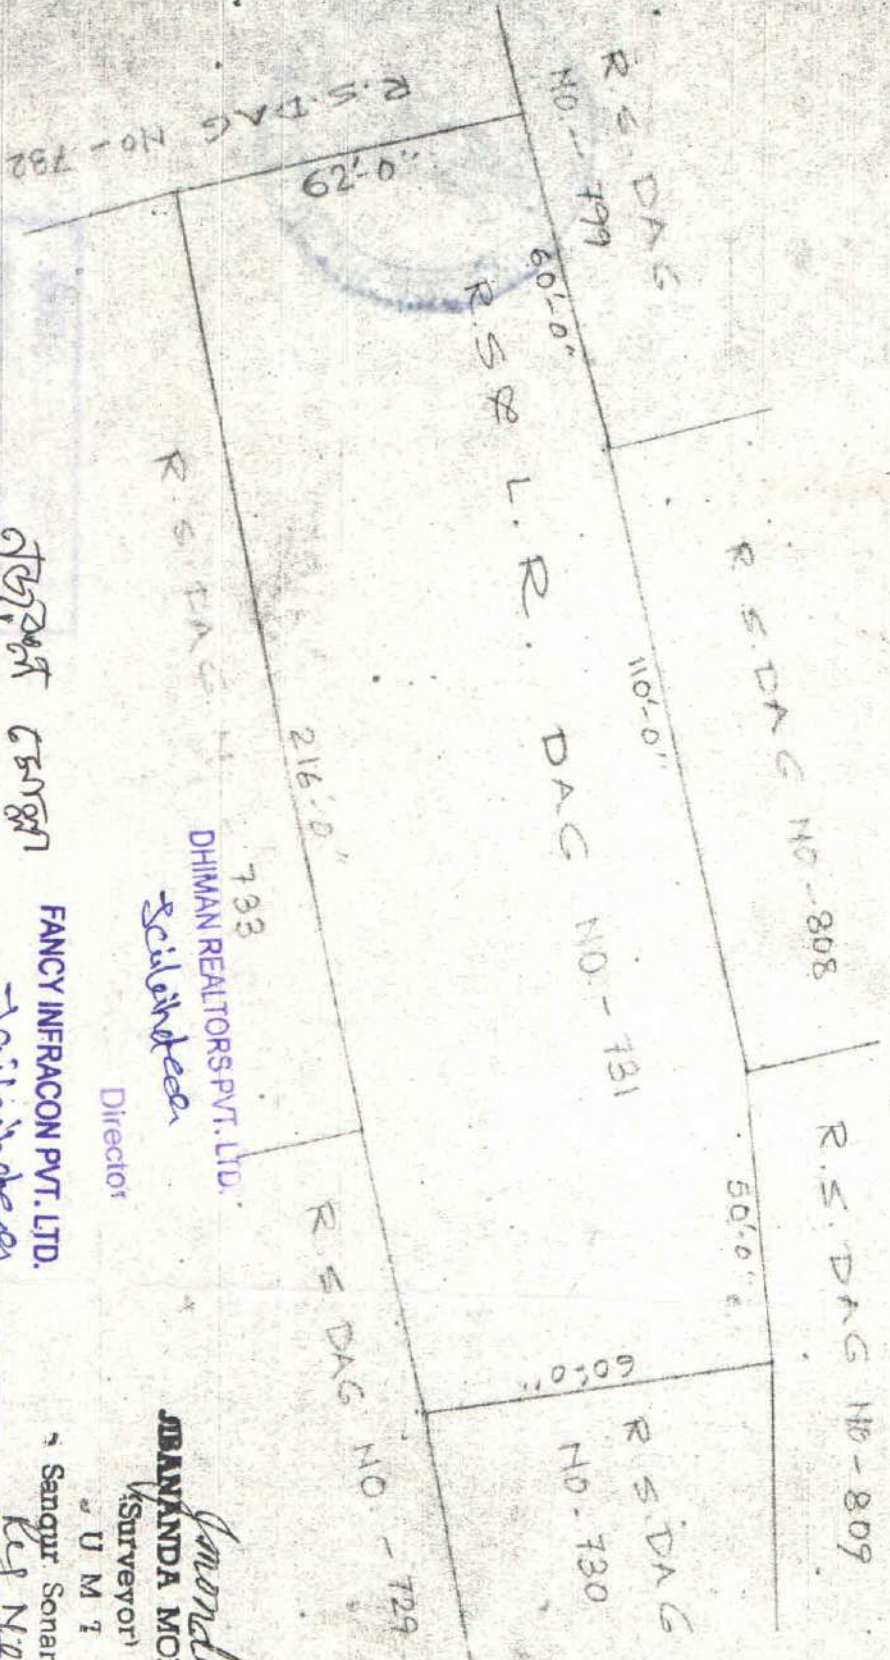 R.S. DAG NO - 732
62'-0"
R. S. DAG
NO. - 799
60'-0"
R.S & L.R. DAG NO. - 731
R. S. DAG NO - 808
110'-0"
R. S. DAG
733
216'-0"
R. S. DAG NO - 809
50'-0"
60'-0"
R. S. DAG
NO. - 730
R. S. DAG NO. - 729
DHIMAN REALTORS PVT. LTD.
Director
FANCY INFRACON PVT. LTD.
JIBANANDA MO
(Surveyor)
Sonar